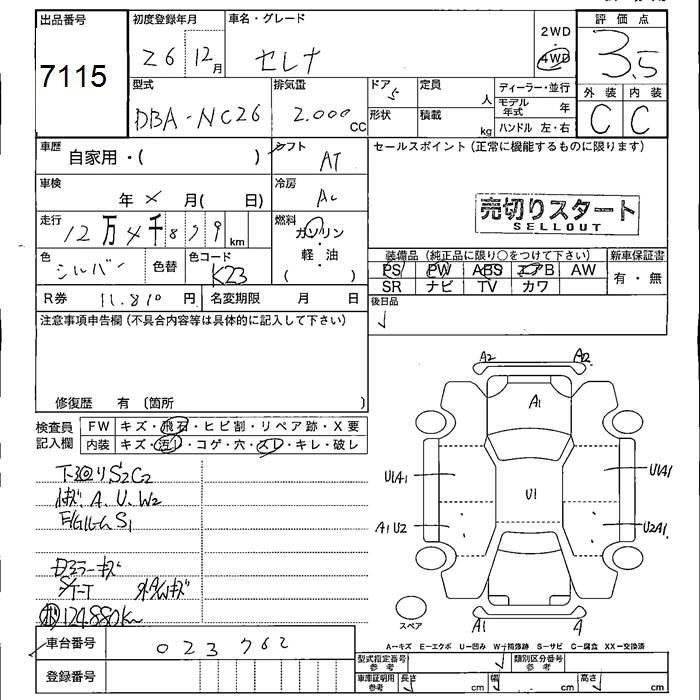 出品番号 初度登録年月 車名・グレード 2WD 評価点
7115 26 12月 セレナ 4WD 3.5
型式 排気量 ドア 5 定員 人 ディーラー・並行 外装 内装
DBA-NC26 2.000cc 形状 積載 kg モデル年式 年 C C
ハンドル 左・右
車歴 自家用・( ) シフト AT セールスポイント (正常に機能するものに限ります)
車検 年 × 月( 日) 冷房 AC
売切りスタート
SELLOUT
走行 12万4千879km 燃料 ガソリン
軽・油
( )
色 シルバー 色替 色コード K23
装備品 (純正品に限り○をつけて下さい) 新車保証書
PS PW ABS エアB AW 有・無
SR ナビ TV カワ
R券 11.810円 名変期限 月 日 後日品
注意事項申告欄 (不具合内容等は具体的に記入して下さい)
修復歴 有 〔箇所 〕
検査員記入欄 FW キズ・飛石・ヒビ割・リペア跡・X要
内装 キズ・汚レ・コゲ・穴・スレ・キレ・破レ
下回りS2C2
A、U、W2
E/GルームS1
ミラーキズ
外AWキズ
124.880Km
A2 A2
A1
U1A1 U1 U1A1
A1U2 U2A1
スペア A1 A
A=キズ E=エクボ U=凹み W=補修跡 S=サビ C=腐食 XX=交換済
車台番号 023762
型式指定番号 参考 類別区分番号 参考
登録番号
車庫証明用 参考 長さ cm 幅 cm 高さ cm